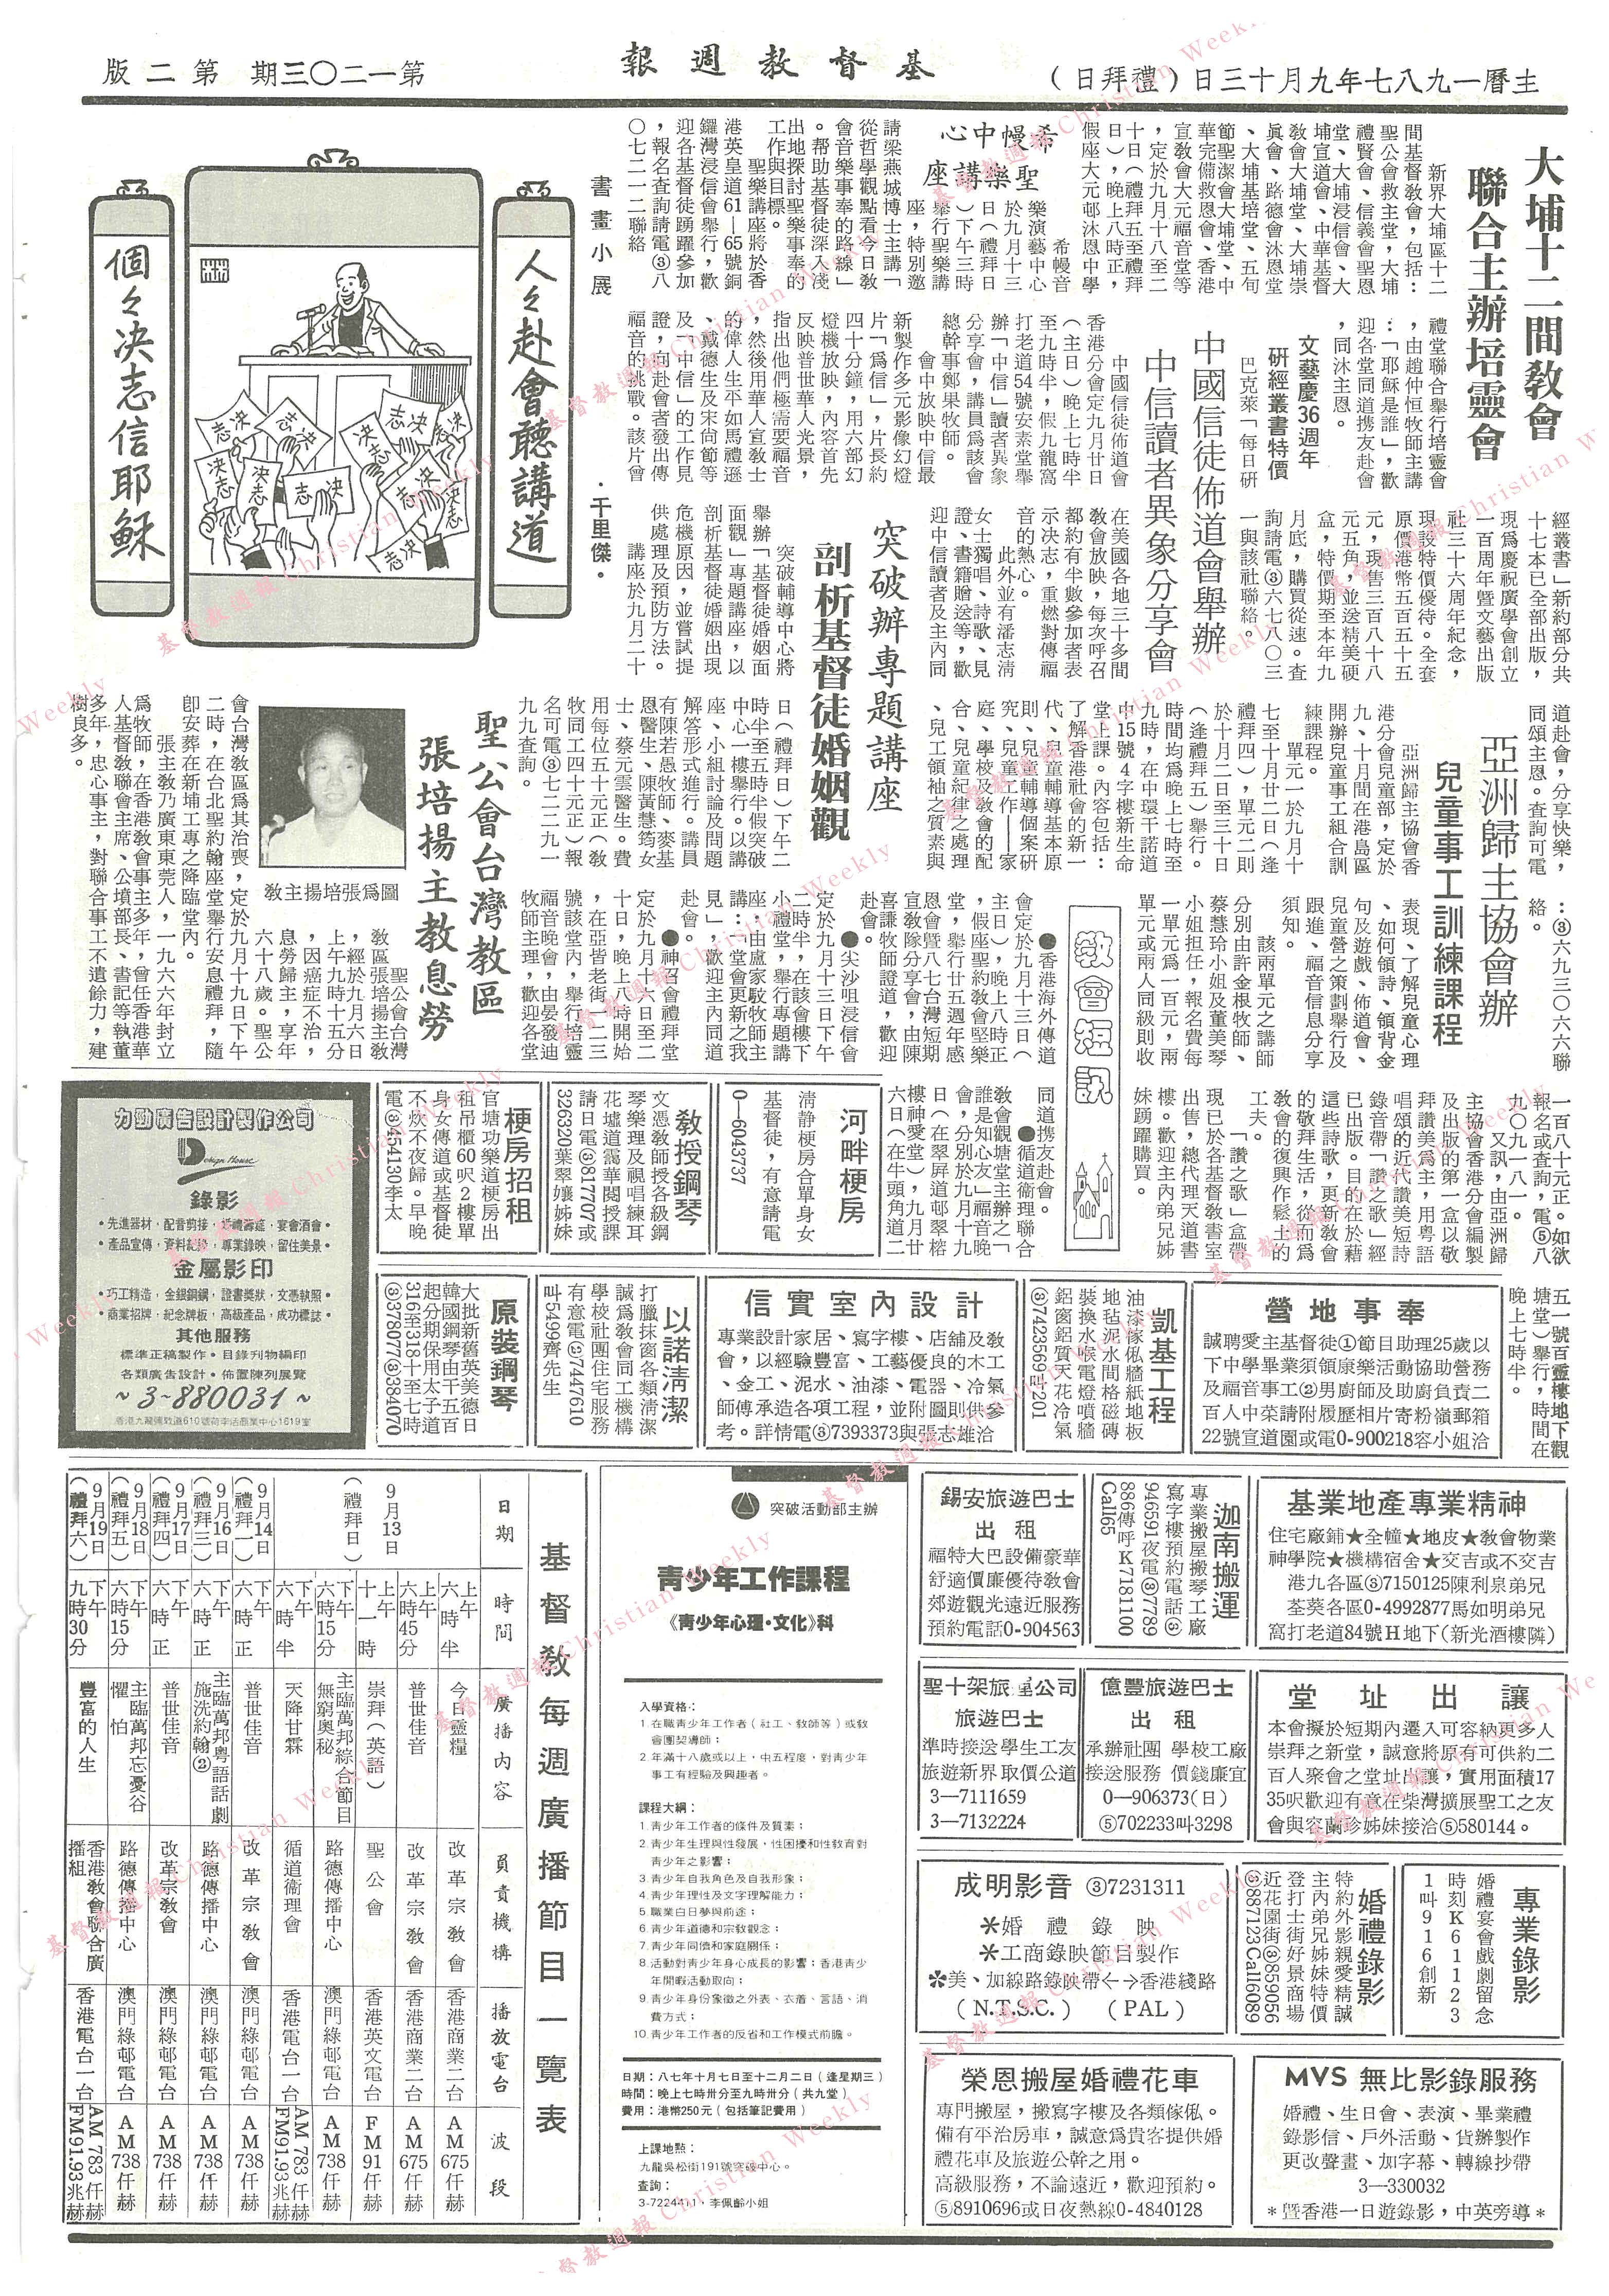 主曆一九八七年九月十三日(禮拜日)
基督教週報
第一二〇三期 第二版
大埔十二間教會
聯合主辦培靈會
新界大埔區十二
間基督教會,包括:
聖公會救主堂,大埔
禮賢會、信義會聖恩
堂、大埔浸信會、大
埔宣道會、中華基督
教會大埔堂、大埔崇
眞會、路德會沐恩堂
、大埔基培堂、五旬
節聖潔會大埔堂、中
華完備救恩會、香港
宣教會大元福音堂等
,定於九月十八至二
十日(禮拜五至禮拜
日),晚上八時正,
假座大元邨沐恩中學
禮堂聯合舉行培靈會
,由趙仲恒牧師主講
:「耶穌是誰」,歡
迎各堂同道携友赴會
,同沐主恩。
文藝慶36週年
研經叢書特價
巴克萊「每日研
經叢書」新約部分共
十七本已全部出版,
現爲慶祝廣學會創立
一百周年暨文藝出版
社三十六周年紀念,
現設特價優待。全套
原價港幣五百五十五
元,現售三百八十八
元五角,並送精美硬
盒,特價期至本年九
月底,購買從速。查
詢請電③六七八〇三
一與該社聯絡。
希幔中心
聖樂講座
希幔音
樂演藝中心
於九月十三
日(禮拜日
)下午三時
舉行聖樂講
座,特別邀
請梁燕城博士主講「
從哲學觀點看今日教
會音樂事奉的路線」
。帮助基督徒深入淺
出地探討聖樂事奉的
工作與目標。
聖樂講座將於香
港英皇道61—65號銅
鑼灣浸信會舉行,歡
迎各基督徒踴躍參加
,報名查詢請電③八
〇七二一二聯絡
中國信徒佈道會舉辦
中信讀者異象分享會
中國信徒佈道會
香港分會定九月廿日
(主日)晚上七時半
至九時半,假九龍窩
打老道54號安素堂舉
辦「中信」讀者異象
分享會,講員爲該會
總幹事鄭果牧師。
會中放映中信最
新製作多元影像幻燈
片「爲信」,片長約
四十分鐘,用六部幻
燈機放映,內容首先
反映普世華人光景,
指出他們極需要福音
,然後用華人宣教士
的偉人生平如馬禮遜
、戴德生及宋尙節等
及「中信」的工作見
證,向赴會者發出傳
福音的挑戰。該片曾
在美國各地三十多間
教會放映,每次呼召
都約有半數參加者表
示决志,重燃對傳福
音的熱心。
此外並有潘志淸
女士獨唱、詩歌、見
證、書籍贈送等,歡
迎中信讀者及主內同
道赴會,分享快樂,
同頌主恩。查詢可電
:③六九三〇六六聯
絡。
書畫小展
·千里傑·
人々赴會聽講道
個々决志信耶穌
决志
突破辦專題講座
剖析基督徒婚姻觀
突破輔導中心將
舉辦「基督徒婚姻面
面觀」專題講座,以
剖析基督徒婚姻出現
危機原因,並嘗試提
供處理及預防方法。
講座於九月二十
日(禮拜日)下午二
時半至五時半假突破
中心一樓舉行。以講
座、小組討論及問題
解答形式進行。講員
有陳若愚牧師、麥基
恩醫生、陳黃慧筠女
士、蔡元雲醫生。費
用每位五十元正(教
牧同工四十元正)報
名可電③七二二九一
九九查詢。
聖公會台灣教區
張培揚主教息勞
圖爲張培揚主教
聖公會台灣
教區張培揚主教
,經於九月六日
上午九時十五分
,因癌症不治,
息勞歸主,享年
六十八歲。聖公
會台灣敎區爲其治喪,定於九月十九日下午
二時,在台北聖約翰座堂舉行安息禮拜,隨
卽安葬在新埔工專之降臨堂內。
張主教乃廣東東莞人,一九六六年封立
爲牧師,在香港教會事主多年,曾任香港華
人基督教聯會主席、公墳部長、書記等執董
多年,忠心事主,對聯合事工不遺餘力,建
樹良多。
亞洲歸主協會辦
兒童事工訓練課程
亞洲歸主協會香
港分會兒童部,定於
九、十月間在港島區
開辦兒童事工組合訓
練課程。
單元一於九月十
七至十月廿二日(逢
禮拜四),單元二則
於十月二日至三十日
(逢禮拜五)舉行。
時間均爲晚上七時至
九時,在中環干諾道
中15號4字樓新生命
堂上課。內容包括:
了解香港社會的新一
代、兒童輔導基本原
則、兒童輔導個案硏
究、兒童工作——家
庭、學校及教會的配
合、兒童紀律之處理
、兒工領袖之質素與
表現、了解兒童心理
、如何領詩、領背金
句及遊戲、佈道會、
兒童營之策劃舉行及
跟進、福音信息分享
須知。
該兩單元之講師
分別由許金根牧師、
蔡慧玲小姐及董美琴
小姐担任,報名費每
一單元爲一百元,兩
單元或兩人同級則收
一百八十元正。如欲
報名或查詢,電⑤八
九〇九一八一。
又訊,由亞洲歸
主協會香港分會編製
及出版的第一盒以敬
拜讚美爲主,用粵語
唱頌的近代讚美短詩
錄音帶「讚之歌」經
已出版。目的在於藉
這些詩歌,更新教會
的敬拜生活,從而爲
教會的復興作鬆土的
工夫。
「讚之歌」盒帶
現已於各基督教書室
出售,總代理天道書
樓。歡迎主內弟兄姊
妹踴躍購買。
教會短訊
●香港海外傳道
會定於九月十三日(
主日),晚上八時正
,假座聖約教會堅樂
堂,舉行廿五週年感
恩會暨八七台灣短期
宣教隊分享會,由陳
喜謙牧師證道,歡迎
赴會。
●尖沙咀浸信會
定於九月十三日下午
二時半,在該會樓下
小禮堂,舉行專題講
座,由盧家馭牧師主
講:「堂會更新之我
見」,歡迎主內同道
赴會。
●神召會禮拜堂
定於九月十六日至二
十日,晚上八時開始
,在亞皆老街一二三
號該堂內,舉行培靈
福音晚會,由晏發迪
牧師主理,歡迎各堂
同道携友赴會。
●循道衞理聯合
教會觀塘堂主辦之「
誰是知心友」福音晚
會,分別於九月十九
日(在翠屏道邨翠榕
樓神愛堂),九月廿
六日(在牛頭角道二
五一號百靈樓地下觀
塘堂)舉行,時間在
晚上七時半。
河畔梗房
淸靜梗房合單身女
基督徒,有意請電
0—6043737
教授鋼琴
文憑敎師授各級鋼
琴樂理及視唱練耳
花墟道靄華閣授課
請日電③817707或
326320葉翠孃姊妹
梗房招租
官塘功樂道梗房出
租吊櫃60呎2樓單
身女傳道或基督徒
不炊不夜歸。早晚
電③454130李太
力勁廣告設計製作公司
Design House
錄影
•先進器材•配音剪接•婚禮壽筵•宴會酒會•
•產品宣傳•資料紀錄•專業錄映•留住美景•
金屬影印
•巧工精造•金銀銅鋼•證書獎狀•文憑執照•
•商業招牌•紀念牌板•高級產品•成功標誌•
其他服務
標準正稿製作•目錄刊物編印
各類廣告設計•佈置陳列展覽
~3-880031~
香港九龍彌敦道610號荷李活商業中心1619室
營地事奉
誠聘愛主基督徒①節目助理25歲以
下中學畢業須領康樂活動協助營務
及福音事工②男廚師及助廚負責二
百人中菜請附履歷相片寄粉嶺郵箱
22號宣道園或電0-900218容小姐洽
凱基工程
油漆傢俬牆紙地板
地毡泥水間格磁磚
裝換水喉電燈噴牆
鋁窗鋁質天花冷氣
③7423569叫2201
信實室內設計
專業設計家居、寫字樓、店舖及教
會,以經驗豐富、工藝優良的木工
、金工、泥水、油漆、電器、冷氣
師傅承造各項工程,並附圖則供參
考。詳情電③7393373與張志雄洽
以諾清潔
打臘抹窗各類清潔
誠爲教會同工機構
學校社團住宅服務
有意電③7447610
叫5499齊先生
原裝鋼琴
大批新舊英美德日
韓國鋼琴由千五百
起分期保用太子道
316至318十至七時
③378077③384070
基督教每週廣播節目一覽表
日期 時間 廣播內容 負責機構 播放電台 波段
9月13日(禮拜日) 上午六時半 今日靈糧 改革宗教會 香港商業二台 AM675仟赫
上午六時45分 普世佳音 改革宗教會 香港商業二台 AM675仟赫
上午十一時 崇拜(英語) 聖公會 香港英文電台 FM91仟赫
下午六時15分 主臨萬邦綜合節目無窮奧秘 路德傳播中心 澳門綠邨電台 AM738仟赫
下午六時半 天降甘霖 循道衞理會 香港電台一台 AM783仟赫FM91.93兆赫
9月14日(禮拜一) 下午六時正 普世佳音 改革宗教會 澳門綠邨電台 AM738仟赫
9月16日(禮拜三) 下午六時正 主臨萬邦粵語話劇施洗約翰② 路德傳播中心 澳門綠邨電台 AM738仟赫
9月17日(禮拜四) 下午六時正 普世佳音 改革宗教會 澳門綠邨電台 AM738仟赫
9月18日(禮拜五) 下午六時15分 主臨萬邦忘憂谷懼怕 路德傳播中心 澳門綠邨電台 AM738仟赫
9月19日(禮拜六) 下午九時30分 豐富的人生 香港教會聯合廣播組 香港電台一台 AM783仟赫FM91.93兆赫
突破活動部主辦
青少年工作課程
《青少年心理•文化》科
入學資格:
1.在職青少年工作者(社工、教師等)或教
會團契導師;
2.年滿十八歲或以上,中五程度,對青少年
事工有經驗及興趣者。
課程大綱:
1.青少年工作者的條件及質素;
2.青少年生理與性發展,性困擾和性敎育對
青少年之影響;
3.青少年自我角色及自我形象;
4.青少年理性及文字理解能力;
5.職業白日夢與前途;
6.青少年道德和宗敎觀念;
7.青少年同儕和家庭關係;
8.活動對青少年身心成長的影響;香港青少
年開暇活動取向;
9.青少年身份象徵之外表、衣着、言語、消
費方式;
10.青少年工作者的反省和工作模式前瞻。
日期:八七年十月七日至十二月二日(逢星期三)
時間:晚上七時卅分至九時卅分(共九堂)
費用:港幣250元(包括筆記費用)
上課地點:
九龍吳松街191號突破中心。
查詢:
3-7224411,李佩齡小姐
基業地產專業精神
住宅廠舖★全幢★地皮★教會物業
神學院★機構宿舍★交吉或不交吉
港九各區③7150125陳利泉弟兄
荃葵各區0-4992877馬如明弟兄
窩打老道84號H地下(新光酒樓隣)
迦南搬運
專業搬屋搬琴工廠
寫字樓預約電話③
946591夜電③37789
886傳呼K7181100
Call65
錫安旅遊巴士
出租
福特大巴設備豪華
舒適價廉優待教會
郊遊觀光遠近服務
預約電話0-904563
堂址出讓
本會擬於短期內遷入可容納更多人
崇拜之新堂,誠意將原有可供約二
百人聚會之堂址出讓,實用面積17
35呎歡迎有意在柴灣擴展聖工之友
會與容蘭珍姊妹接洽⑤580144。
億豐旅遊巴士
出租
承辦社團 學校工廠
接送服務 價錢廉宜
0—906373(日)
⑤702233叫3298
聖十架旅運公司
旅遊巴士
準時接送學生工友
旅遊新界取價公道
3—7111659
3—7132224
專業錄影
婚禮宴會戲劇留念
時刻K611123
1叫916創新
婚禮錄影
特約外影親愛精誠
主內弟兄姊妹特價
登打士街好景商場
近花園街③859056
③887123Call6089
成明影音 ③7231311
*婚禮錄映
*工商錄映節目製作
*美、加線路錄映帶←→香港綫路
(N.T.S.C.) (PAL)
MVS 無比影錄服務
婚禮、生日會、表演、畢業禮
錄影信、戶外活動、貨辦製作
更改聲畫、加字幕、轉線抄帶
3—330032
*暨香港一日遊錄影,中英旁導*
榮恩搬屋婚禮花車
專門搬屋,搬寫字樓及各類傢俬。
備有平治房車,誠意爲貴客提供婚
禮花車及旅遊公幹之用。
高級服務,不論遠近,歡迎預約。
⑤8910696或日夜熱線0-4840128
基督教週報 Christian Weekly